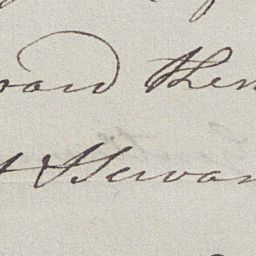 raid then
t Servan